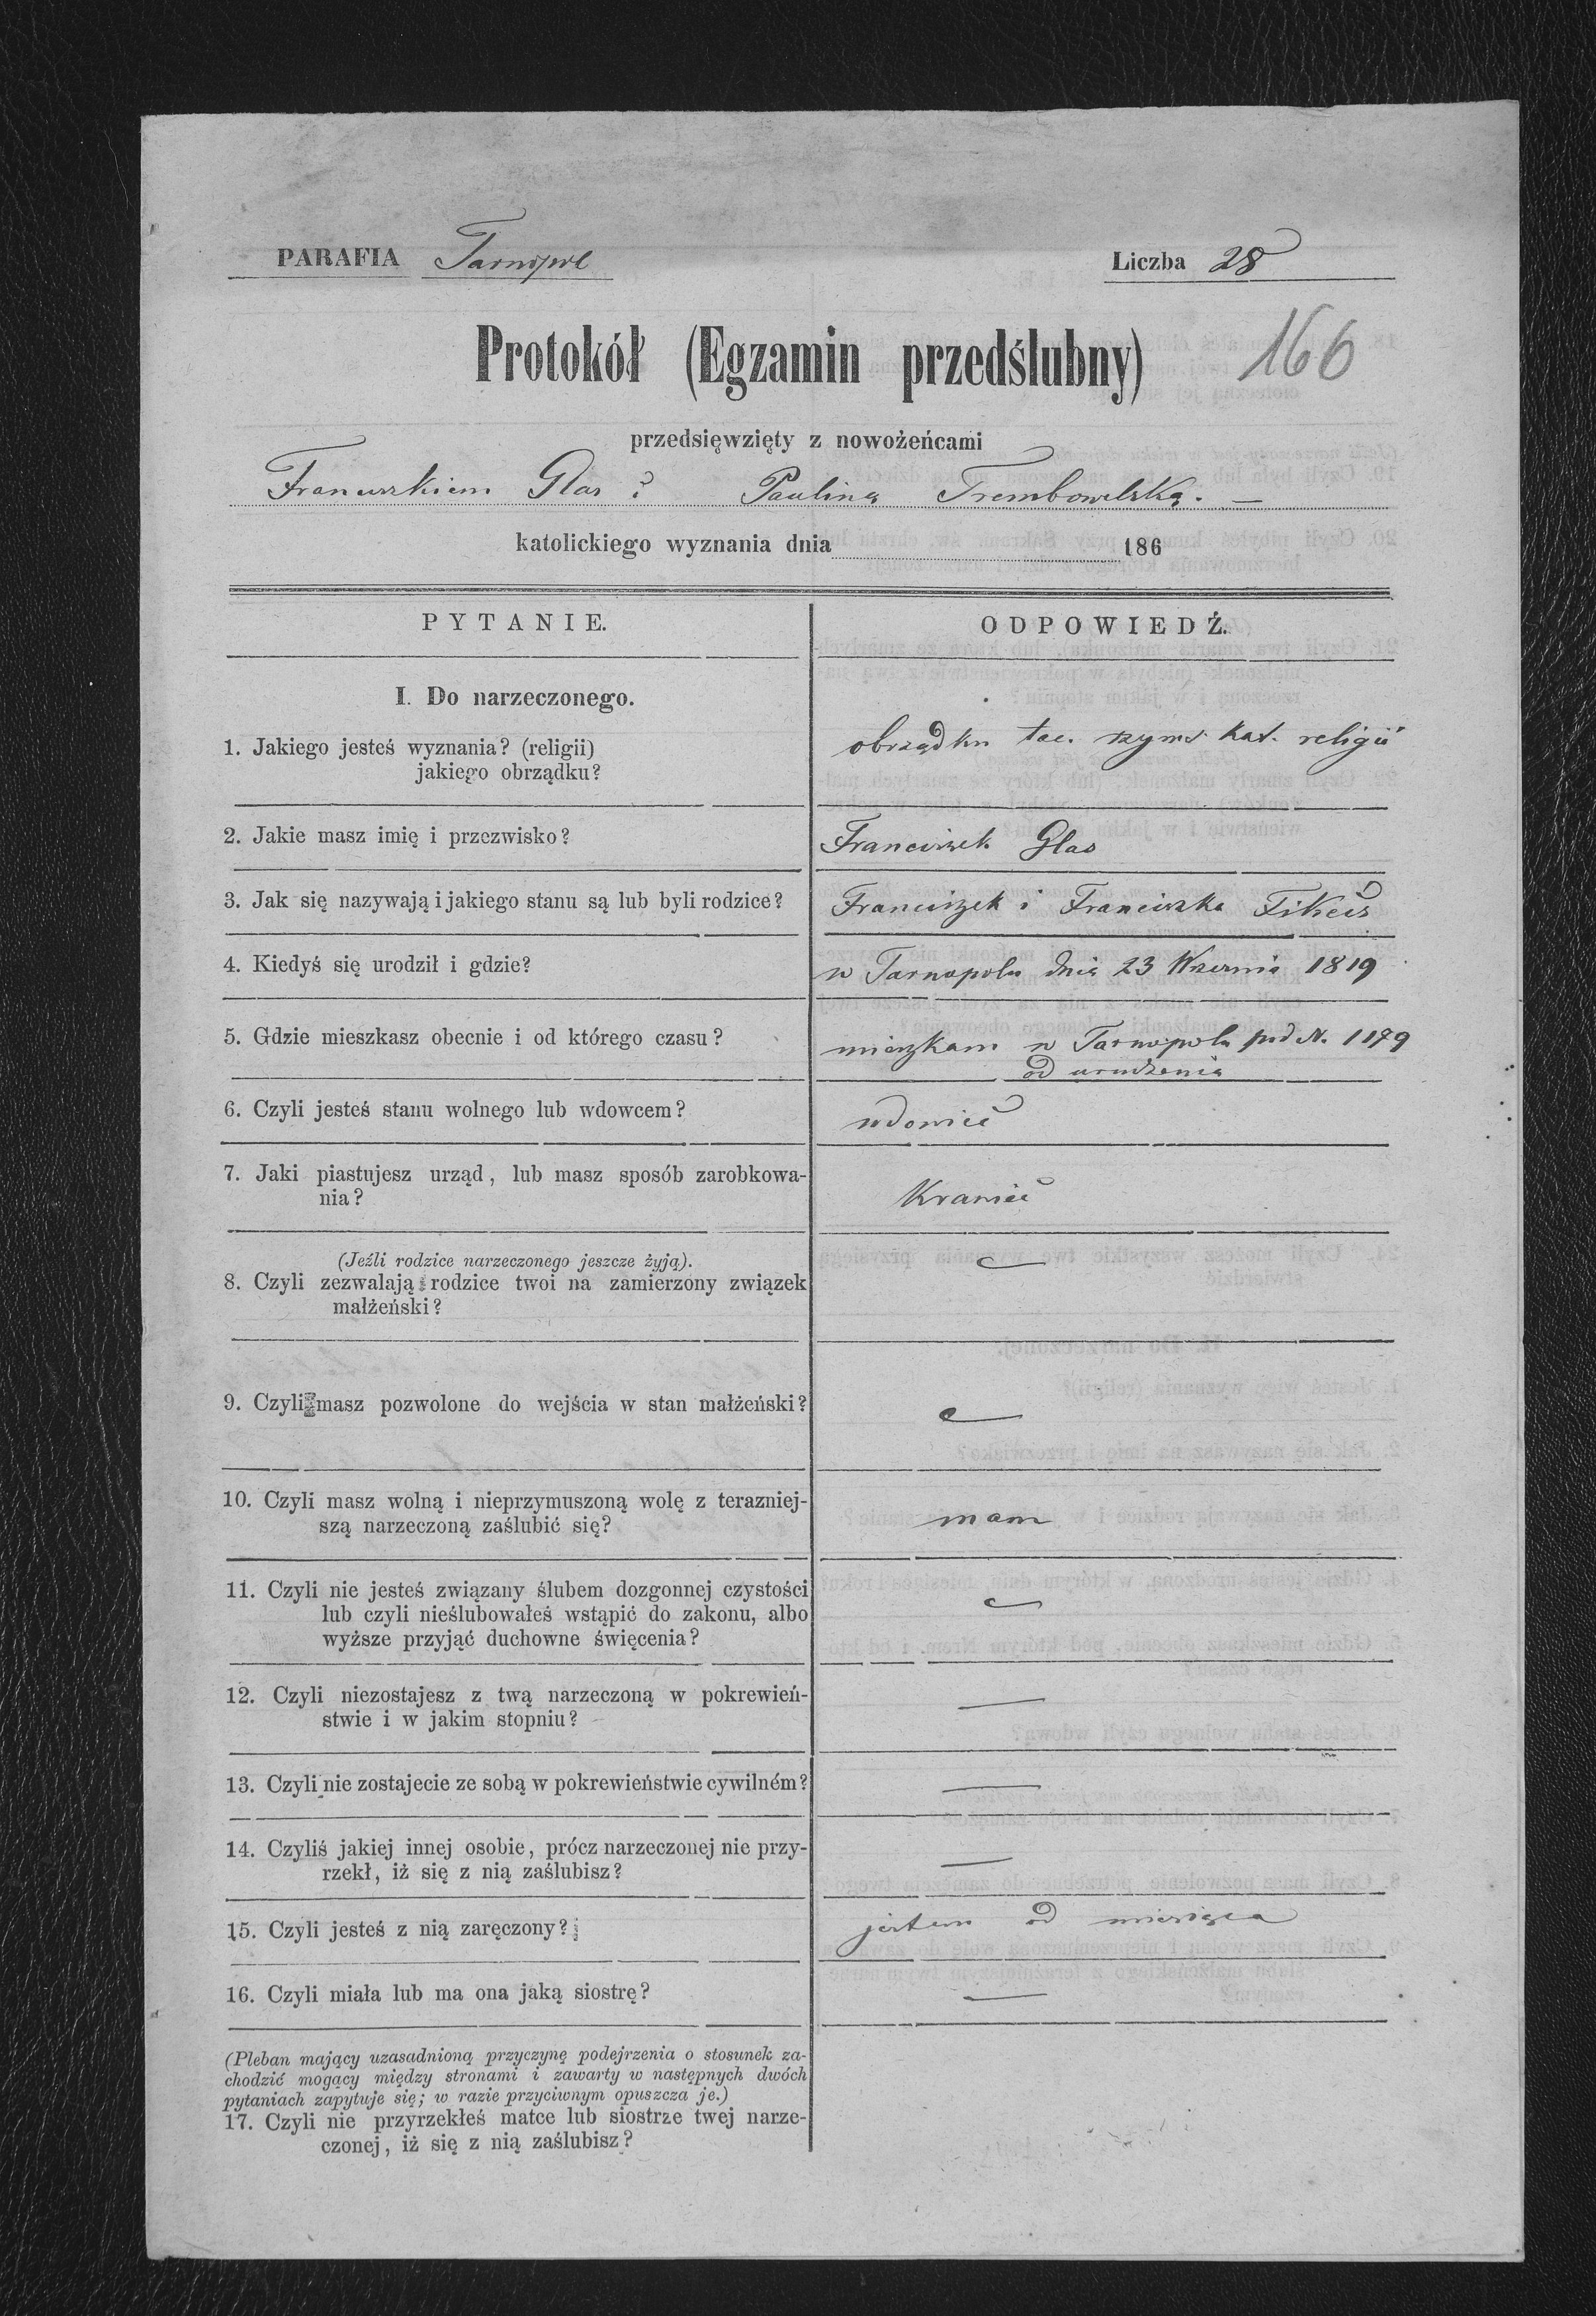 PARAFIA Tarnopol Liczba 28
Protokół (Egzamin przedślubny) 166
przedsięwzięty z nowożeńcami
Franciszkiem Glas i Pauliną Trembowelską. —
katolickiego wyznania dnia 186
PYTANIE. ODPOWIEDŹ.
I. Do narzeczonego.
1. Jakiego jesteś wyznania? (religii) obrządku łac. rzyms. kat. religii
jakiego obrządku?
2. Jakie masz imię i przezwisko? Franciszek Glas
3. Jak się nazywają i jakiego stanu są lub byli rodzice? Franciszek i Franciszka
4. Kiedyś się urodził i gdzie? w Tarnopolu dnia 23 Września 1819
5. Gdzie mieszkasz obecnie i od którego czasu? mieszkam w Tarnopolu pod N. 1179
od urodzenia
6. Czyli jesteś stanu wolnego lub wdowcem? wdowiec
7. Jaki piastujesz urząd, lub masz sposób zarobkowa-
nia? Krawiec
(Jeźli rodzice narzeczonego jeszcze żyją).
8. Czyli zezwalają rodzice twoi na zamierzony związek
małżeński?
9. Czyli masz pozwolone do wejścia w stan małżeński?
10. Czyli masz wolną i nieprzymuszoną wolę z terazniej-
szą narzeczoną zaślubić się? mam
11. Czyli nie jesteś związany ślubem dozgonnej czystości
lub czyli nieślubowałeś wstąpić do zakonu, albo
wyższe przyjąć duchowne święcenia?
12. Czyli niezostajesz z twą narzeczoną w pokrewień- —
stwie i w jakim stopniu?
13. Czyli nie zostajecie ze sobą w pokrewieństwie cywilném? —
14. Czyliś jakiej innej osobie, prócz narzeczonej nie przy- —
rzekł, iż się z nią zaślubisz?
15. Czyli jesteś z nią zaręczony? jestem od miesiąca
16. Czyli miała lub ma ona jaką siostrę? —
(Pleban mający uzasadnioną przyczynę podejrzenia o stosunek za-
chodzić mogący między stronami i zawarty w następnych dwóch
pytaniach zapytuje się; w razie przyciwnym opuszcza je.)
17. Czyli nie przyrzekłeś matce lub siostrze twej narze-
czonej, iż się z nią zaślubisz?